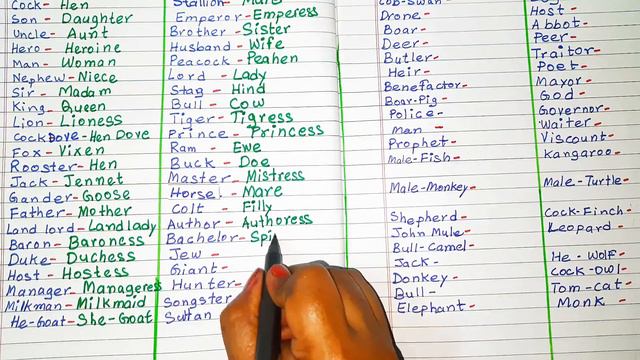 Cock - Hen
Son - Daughter
Uncle - Aunt
Hero - Heroine
Man - Woman
Nephew - Niece
Sir - Madam
King - Queen
Lion - Lioness
Cock Dove - Hen Dove
Fox - Vixen
Rooster - Hen
Jack - Jennet
Gander - Goose
Father - Mother
Land lord - Land lady
Baron - Baroness
Duke - Duchess
Host - Hostess
Manager - Manageress
Milkman - Milkmaid
He-Goat - She-Goat
Stallion - Mare
Emperor - Emperess
Brother - Sister
Husband - Wife
Peacock - Peahen
Lord - Lady
Stag - Hind
Bull - Cow
Tiger - Tigress
Prince - Princess
Ram - Ewe
Buck - Doe
Master - Mistress
Horse - Mare
Colt - Filly
Author - Authoress
Bachelor - Spi
Jew -
Giant -
Hunter -
Songster
Sultan
Cob-Swan -
Drone -
Boar -
Deer -
Butler -
Heir -
Benefactor -
Boar-Pig -
Police -
Man -
Prophet -
Male-Fish -
Male-Monkey -
Shepherd -
John Mule -
Bull-Camel -
Jack -
Donkey -
Bull -
Elephant -
Host -
Abbot -
Peer -
Traitor -
Poet -
Mayor -
God -
Governor -
Waiter -
Viscount -
Kangaroo -
Male-Turtle -
Cock-Finch -
Leopard -
He-Wolf -
Cock-Owl -
Tom-Cat -
Monk -